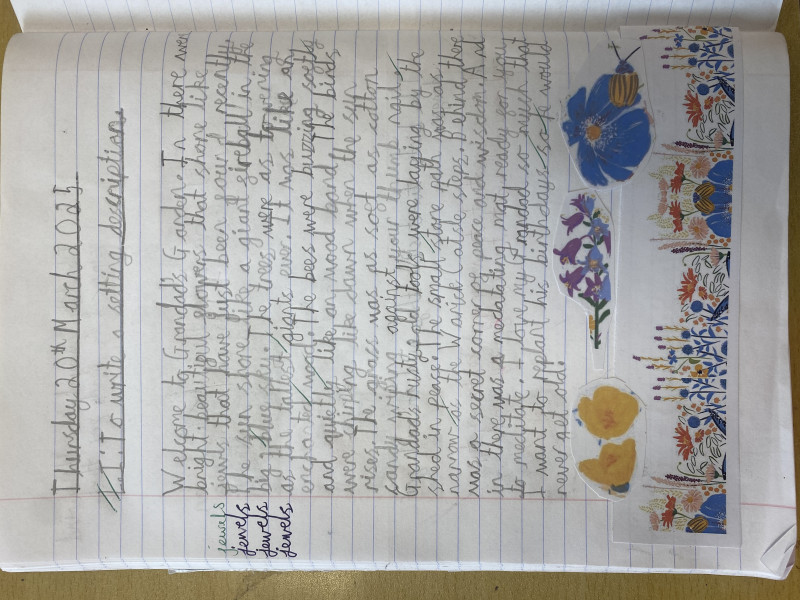 Thursday 20th March 2025
L.I: To write a setting description.
Welcome to Grandad's Garden. In there wer
bright beautiful flowers that shone like
jewels
jewls that have just been found recently.
jewels
The sun shone like a giant fireball in the
jewels
big blue sky. The trees were as towering
jewels
as the tallest giants ever. It was like an
enchanted wood. The bees were buzzing softly
and quietly like an wood band. The birds
were chirping like dawn when the sun
rises. The grass was as soft as cotton
candy rubbing against your thumb nail.
Grandad's rusty old tools were laying by the
shed in peace. The small stone path was as
narrow as the Warick Catsle steps. Behind there
was a secret corner for peace and wisdom. And
in there was a medatating mat ready for you
to meditate. I love my Grandad so much that
I want to replant his birthdays so he would
never get old!